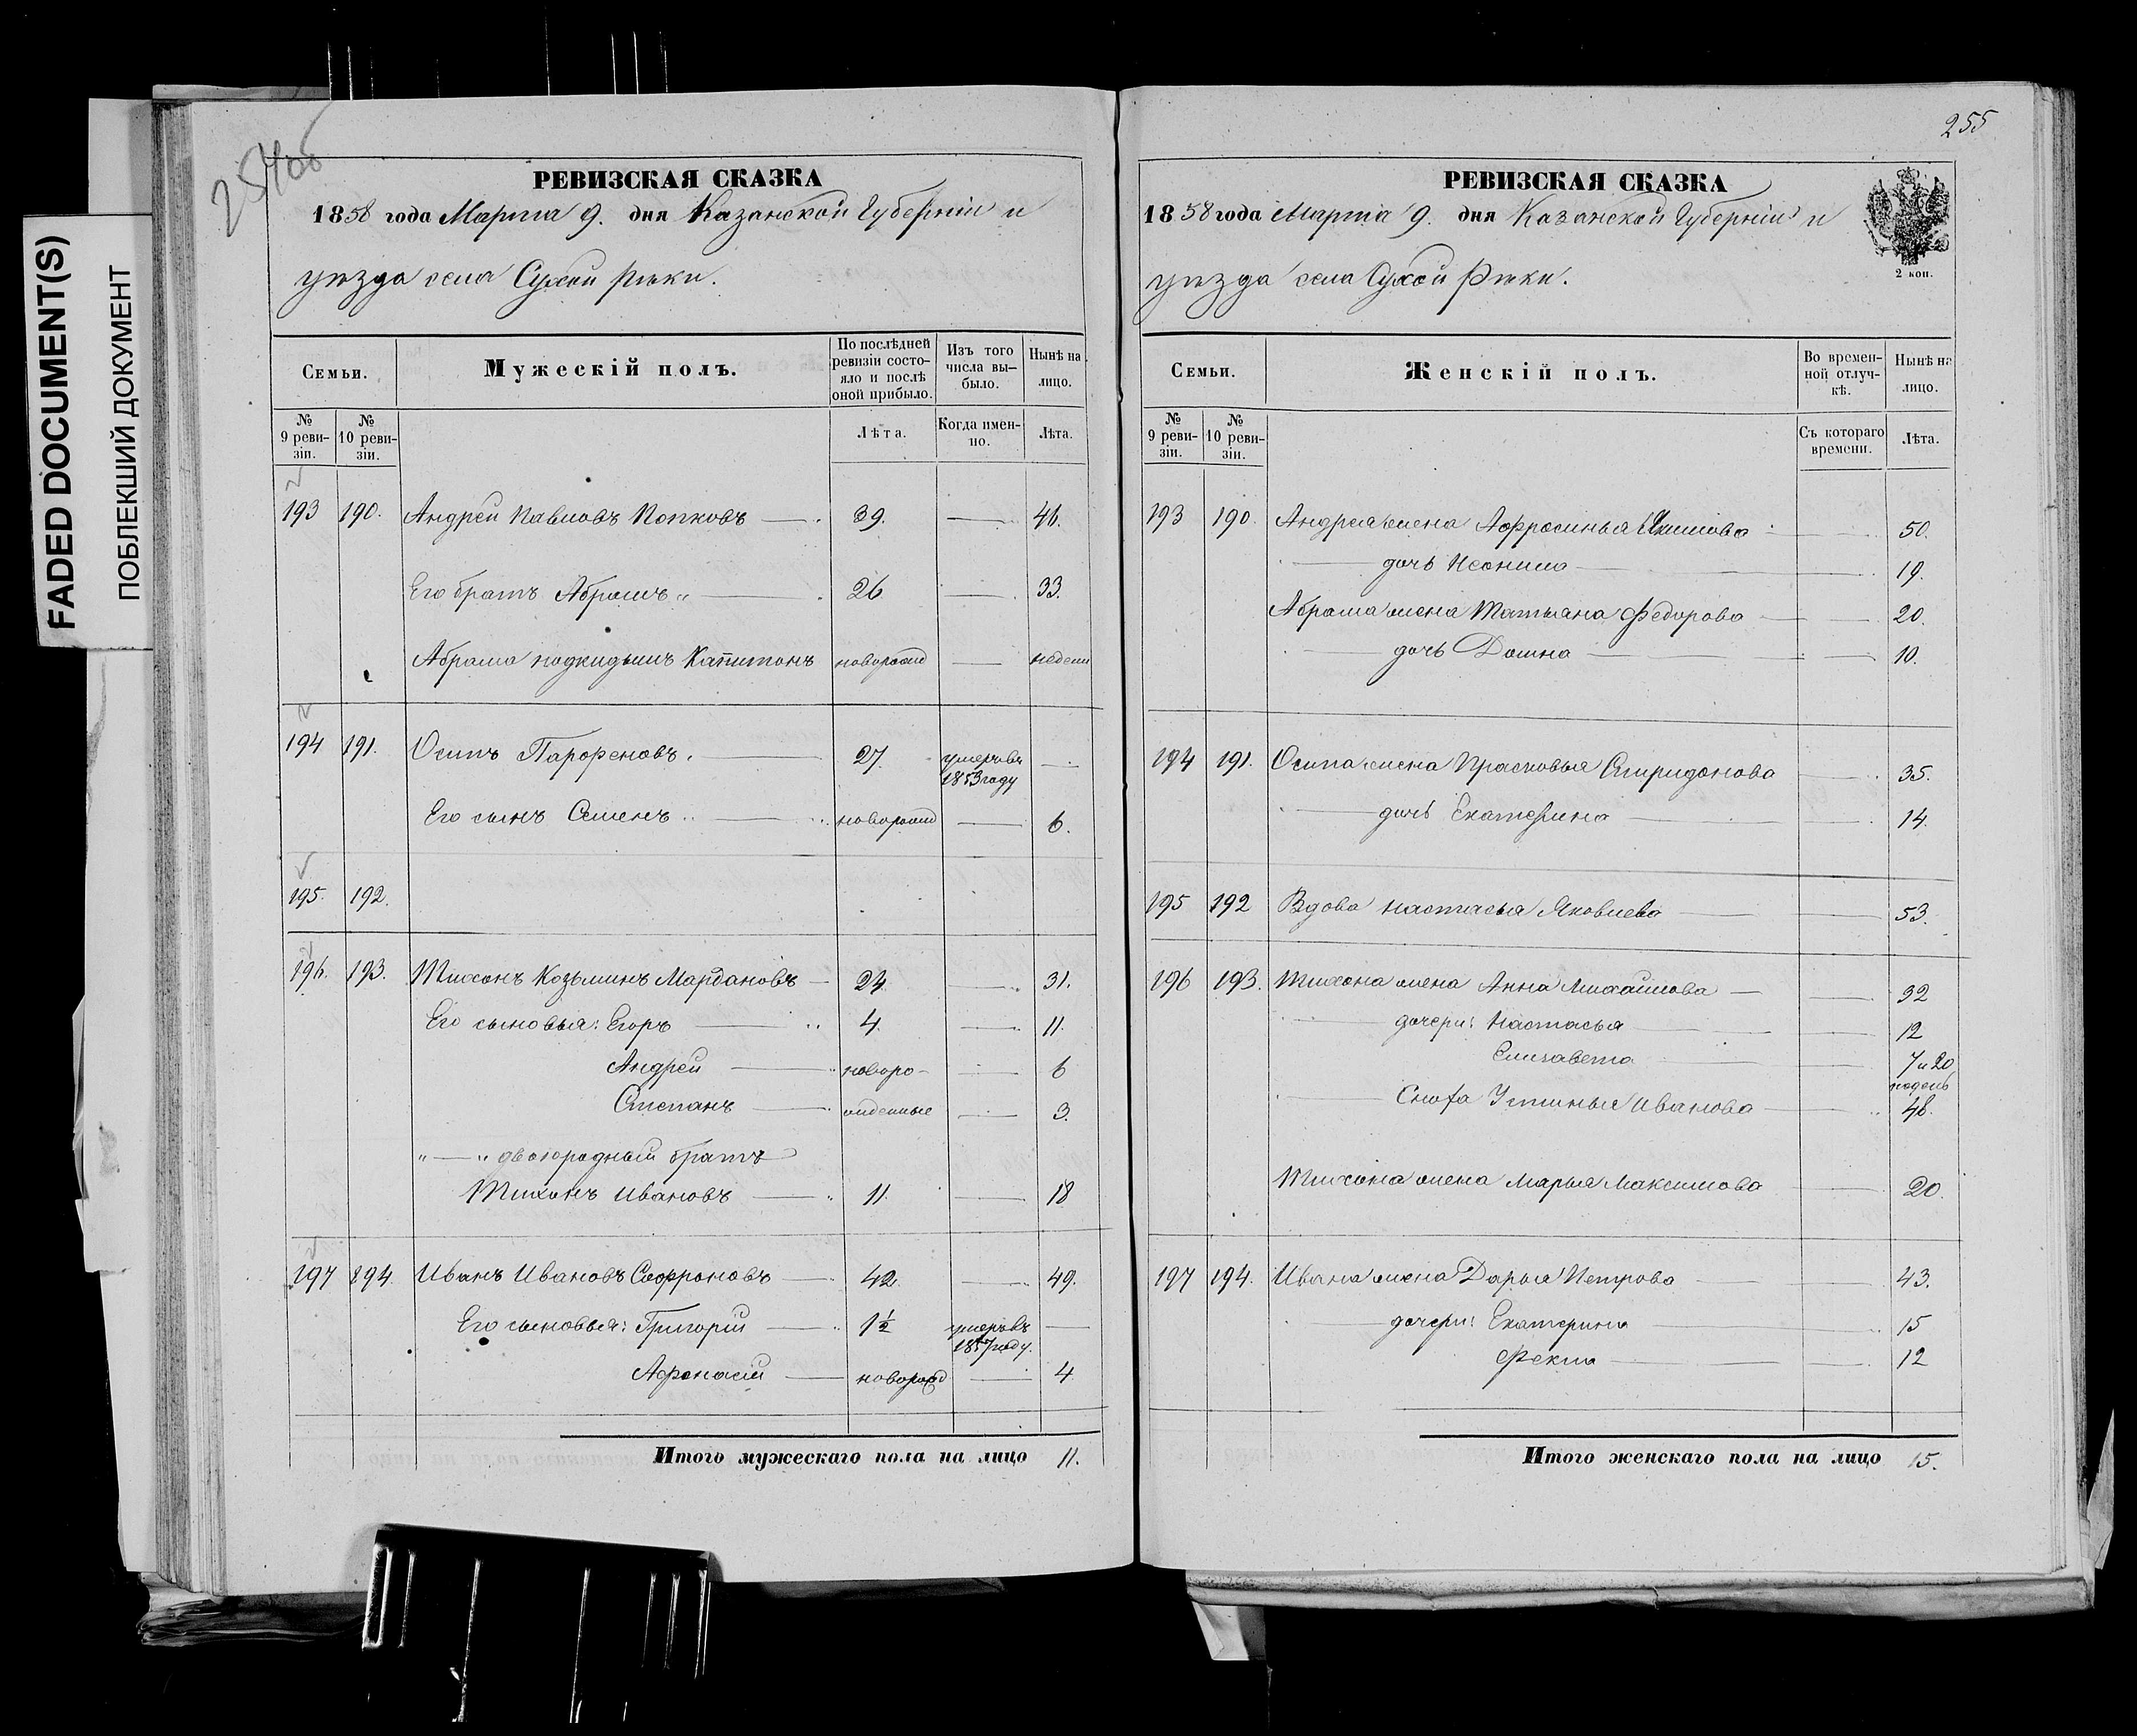 FADED DOCUMENT(S)
ПОБЛЕКШИЙ ДОКУМЕНТ
РЕВИЗСКАЯ СКАЗКА
1858 года Марта 9. дня Казанской Губерніи и
уѣзда села Сухой рѣки.
Семьи.
Мужескій полъ.
По послѣдней ревизіи состо-
яло и послѣ оной прибыло.
Изъ того числа вы-
было.
Нынѣ на лицо.
№ 9 реви-
зіи.
№ 10 реви-
зіи.
Лѣта.
Когда имен-
но.
Лѣта.
193 190. Андрей Павловъ Попковъ 39. 46.
Его братъ Абрамъ 26 33.
Абрама подкидышъ Капитонъ новорожд недели
194 191. Осипъ Парфеновъ. 27. умеръ въ
1853 году
Его сынъ Семенъ новорожд 6.
195. 192.
196. 193. Тихонъ Козьминъ Мардановъ 24 31.
Его сыновья: Егоръ 4. 11.
Андрей новоро- 6
Степанъ жденные 3.
" — " двоюродный братъ
Тихонъ Ивановъ 11. 18
197 194. Иванъ Ивановъ Софроновъ 42. 49.
Его сыновья: Григорій 1½ умеръ въ
1857 году.
Афонасій новорожд 4
Итого мужескаго пола на лицо 11.
255
РЕВИЗСКАЯ СКАЗКА
1858 года Марта 9. дня Казанской Губерніи и
уѣзда села Сухой Рѣки.
2 коп.
Семьи.
Женскій полъ.
Во времен-
ной отлуч-
кѣ.
Нынѣ на лицо.
№ 9 реви-
зіи.
№ 10 реви-
зіи.
Съ котораго времени.
Лѣта.
193 190. Андрея жена Афросинья 50.
дочь 19.
Абрама жена Татьяна Федорова 20.
дочь Домна 10.
194 191. Осипа жена Прасковья Спиридонова 35.
дочь Екатерина 14.
195 192 Вдова Настасья Яковлева 53.
196 193. Тихона жена Анна Михайлова 32
дочери: Настасья 12
Елизавета 7 и 20
недель
Сноха Устинья Иванова 48.
Тихона жена Марья Максимова 20.
197 194. Ивана жена Дарья Петрова 43.
дочери: Екатерина 15
Фекла 12
Итого женскаго пола на лицо 15.